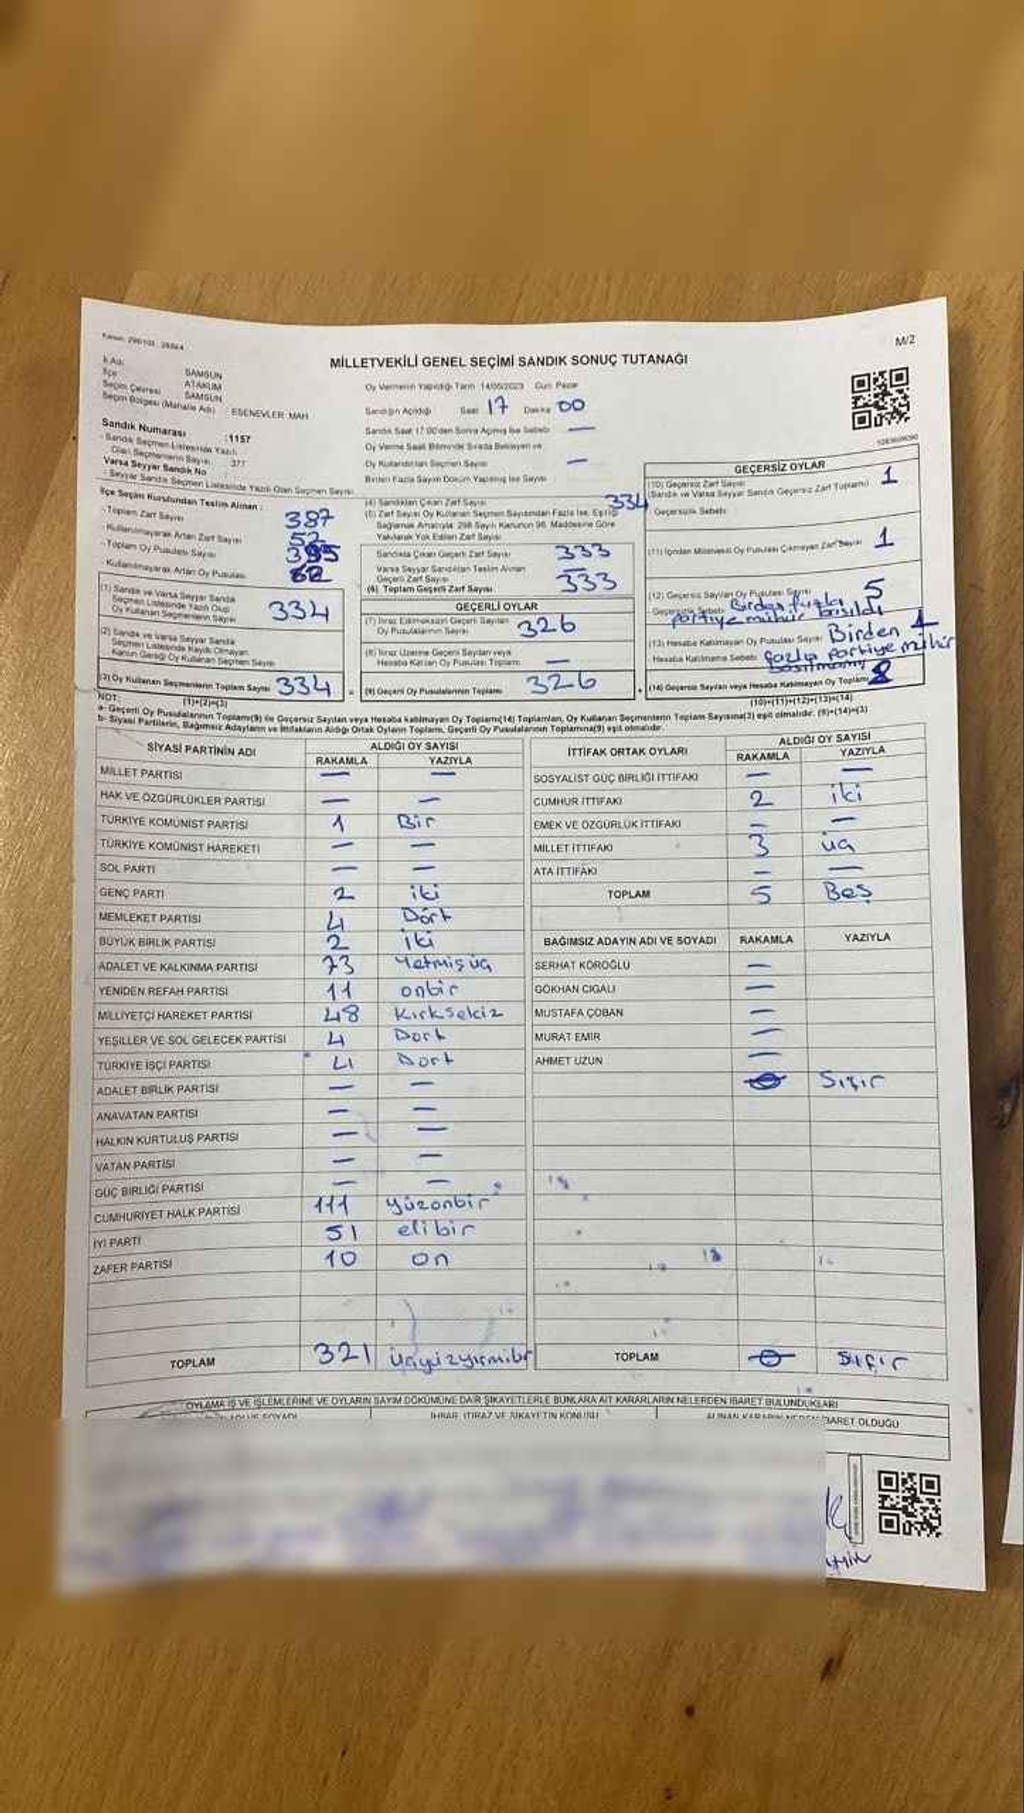 M/2
MİLLETVEKİLİ GENEL SEÇİMİ SANDIK SONUÇ TUTANAĞI
İl Adı: SAMSUN
İlçe ATAKUM
Seçim Çevresi SAMSUN
Seçim Bölgesi (Mahalle Adı) : ESENEVLER MAH
Oy Vermenin Yapıldığı Tarih 14/05/2023 Gün Pazar
Sandığın Açıldığı Saat 17 Dakika 00
Sandık Saat 17:00'den Sonra Açılmış İse Sebebi —
Oy Verme Saati Bitiminde Sırada Bekleyen ve
Oy Kullandırılan Seçmen Sayısı —
Birden Fazla Sayım Döküm Yapılmış İse Sayısı
Sandık Numarası :1157
- Sandık Seçmen Listesinde Yazılı
Olan Seçmenlerin Sayısı 377
Varsa Seyyar Sandık No
- Seyyar Sandık Seçmen Listesinde Yazılı Olan Seçmen Sayısı
İlçe Seçim Kurulundan Teslim Alınan :
- Toplam Zarf Sayısı 387
- Kullanılmayarak Artan Zarf Sayısı 52
- Toplam Oy Pusulası Sayısı
- Kullanılmayarak Artan Oy Pusulası
(1) Sandık ve Varsa Seyyar Sandık
Seçmen Listesinde Yazılı Olup
Oy Kullanan Seçmenlerin Sayısı 334
(2) Sandık ve Varsa Seyyar Sandık
Seçmen Listesinde Kaydı Olmayan
Kanun Gereği Oy Kullanan Seçmen Sayısı
(3) Oy Kullanan Seçmenlerin Toplam Sayısı 334
(1)+(2)=(3)
(4) Sandıktan Çıkan Zarf Sayısı 334
(5) Zarf Sayısı Oy Kullanan Seçmen Sayısından Fazla İse, Eşitliği
Sağlamak Amacıyla, 298 Sayılı Kanunun 98. Maddesine Göre
Yakılarak Yok Edilen Zarf Sayısı
Sandıkta Çıkan Geçerli Zarf Sayısı 333
Varsa Seyyar Sandıktan Teslim Alınan
Geçerli Zarf Sayısı —
(6) Toplam Geçerli Zarf Sayısı 333
GEÇERLİ OYLAR
(7) İtiraz Edilmeksizin Geçerli Sayılan
Oy Pusulalarının Sayısı 326
(8) İtiraz Üzerine Geçerli Sayılan veya
Hesaba Katılan Oy Pusulası Toplamı —
(9) Geçerli Oy Pusulalarının Toplamı 326
GEÇERSİZ OYLAR
(10) Geçersiz Zarf Sayısı
(Sandık ve Varsa Seyyar Sandık Geçersiz Zarf Toplamı) 1
Geçersizlik Sebebi
(11) İçinden Milletvekili Oy Pusulası Çıkmayan Zarf Sayısı 1
(12) Geçersiz Sayılan Oy Pusulası Sayısı 5
Geçersizlik Sebebi Birden fazla
partiye mühür basıldı
(13) Hesaba Katılmayan Oy Pusulası Sayısı Birden 1
Hesaba Katılmama Sebebi fazla partiye mühür
(14) Geçersiz Sayılan veya Hesaba Katılmayan Oy Toplamı 8
(10)+(11)+(12)+(13)=(14)
NOT:
a- Geçerli Oy Pusulalarının Toplamı(9) ile Geçersiz Sayılan veya Hesaba Katılmayan Oy Toplamı(14) Toplamları, Oy Kullanan Seçmenlerin Toplam Sayısına(3) eşit olmalıdır. (9)+(14)=(3)
b- Siyasi Partilerin, Bağımsız Adayların ve İttifakların Aldığı Ortak Oyların Toplamı, Geçerli Oy Pusulalarının Toplamına(9) eşit olmalıdır.
SİYASİ PARTİNİN ADI ALDIĞI OY SAYISI
RAKAMLA YAZIYLA
MİLLET PARTİSİ — —
HAK VE ÖZGÜRLÜKLER PARTİSİ — —
TÜRKİYE KOMÜNİST PARTİSİ 1 Bir
TÜRKİYE KOMÜNİST HAREKETİ — —
SOL PARTİ — —
GENÇ PARTİ 2 iki
MEMLEKET PARTİSİ 4 Dört
BÜYÜK BİRLİK PARTİSİ 2 iki
ADALET VE KALKINMA PARTİSİ 73 Yetmişüç
YENİDEN REFAH PARTİSİ 11 onbir
MİLLİYETÇİ HAREKET PARTİSİ 48 Kırksekiz
YEŞİLLER VE SOL GELECEK PARTİSİ 4 Dört
TÜRKİYE İŞÇİ PARTİSİ 4 Dört
ADALET BİRLİK PARTİSİ — —
ANAVATAN PARTİSİ — —
HALKIN KURTULUŞ PARTİSİ — —
VATAN PARTİSİ — —
GÜÇ BİRLİĞİ PARTİSİ — —
CUMHURİYET HALK PARTİSİ 111 yüzonbir
İYİ PARTİ 51 elibir
ZAFER PARTİSİ 10 on
TOPLAM 321 üçyüzyirmibir
İTTİFAK ORTAK OYLARI ALDIĞI OY SAYISI
RAKAMLA YAZIYLA
SOSYALİST GÜÇ BİRLİĞİ İTTİFAKI — —
CUMHUR İTTİFAKI 2 iki
EMEK VE ÖZGÜRLÜK İTTİFAKI — —
MİLLET İTTİFAKI 3 üç
ATA İTTİFAKI — —
TOPLAM 5 Beş
BAĞIMSIZ ADAYIN ADI VE SOYADI RAKAMLA YAZIYLA
SERHAT KÖROĞLU —
GÖKHAN CIGALI —
MUSTAFA ÇOBAN —
MURAT EMİR —
AHMET UZUN —
0 Sıfır
TOPLAM 0 Sıfır
OYLAMA İŞ VE İŞLEMLERİNE VE OYLARIN SAYIM DÖKÜMÜNE DAİR ŞİKAYETLERLE BUNLARA AİT KARARLARIN NELERDEN İBARET BULUNDUKLARI
İHBAR, İTİRAZ VE ŞİKAYETİN KONUSU